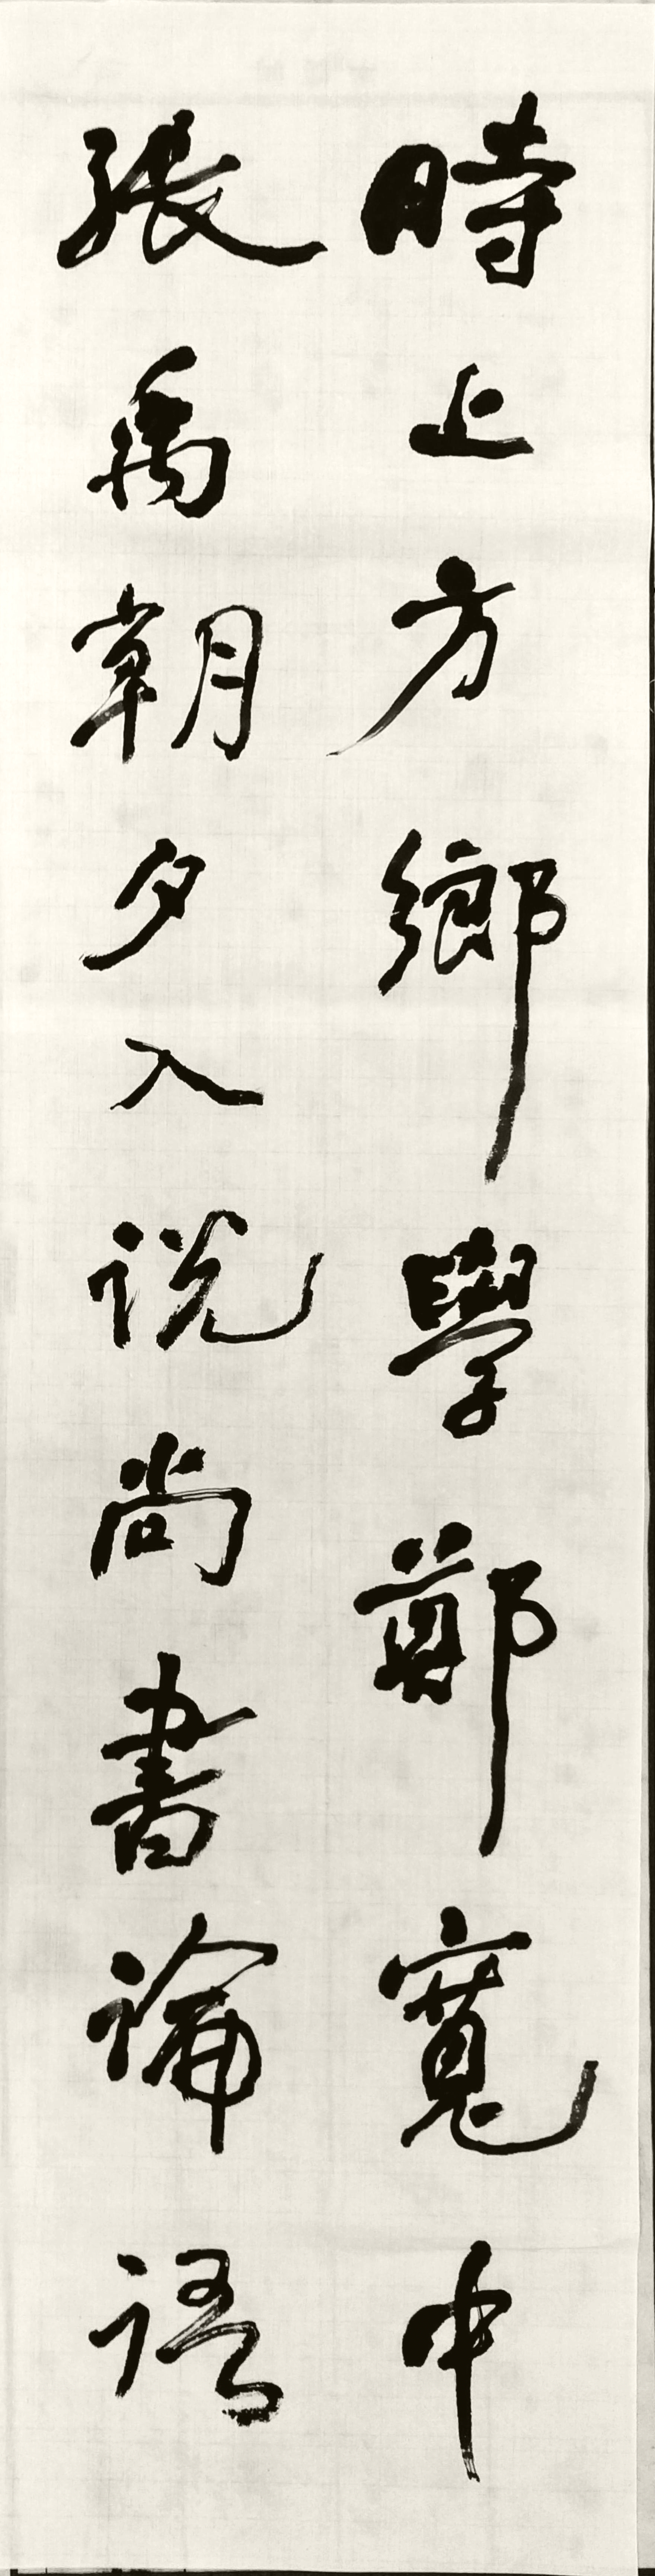 時上方鄉學鄭寬中
張禹朝夕入說尚書論語